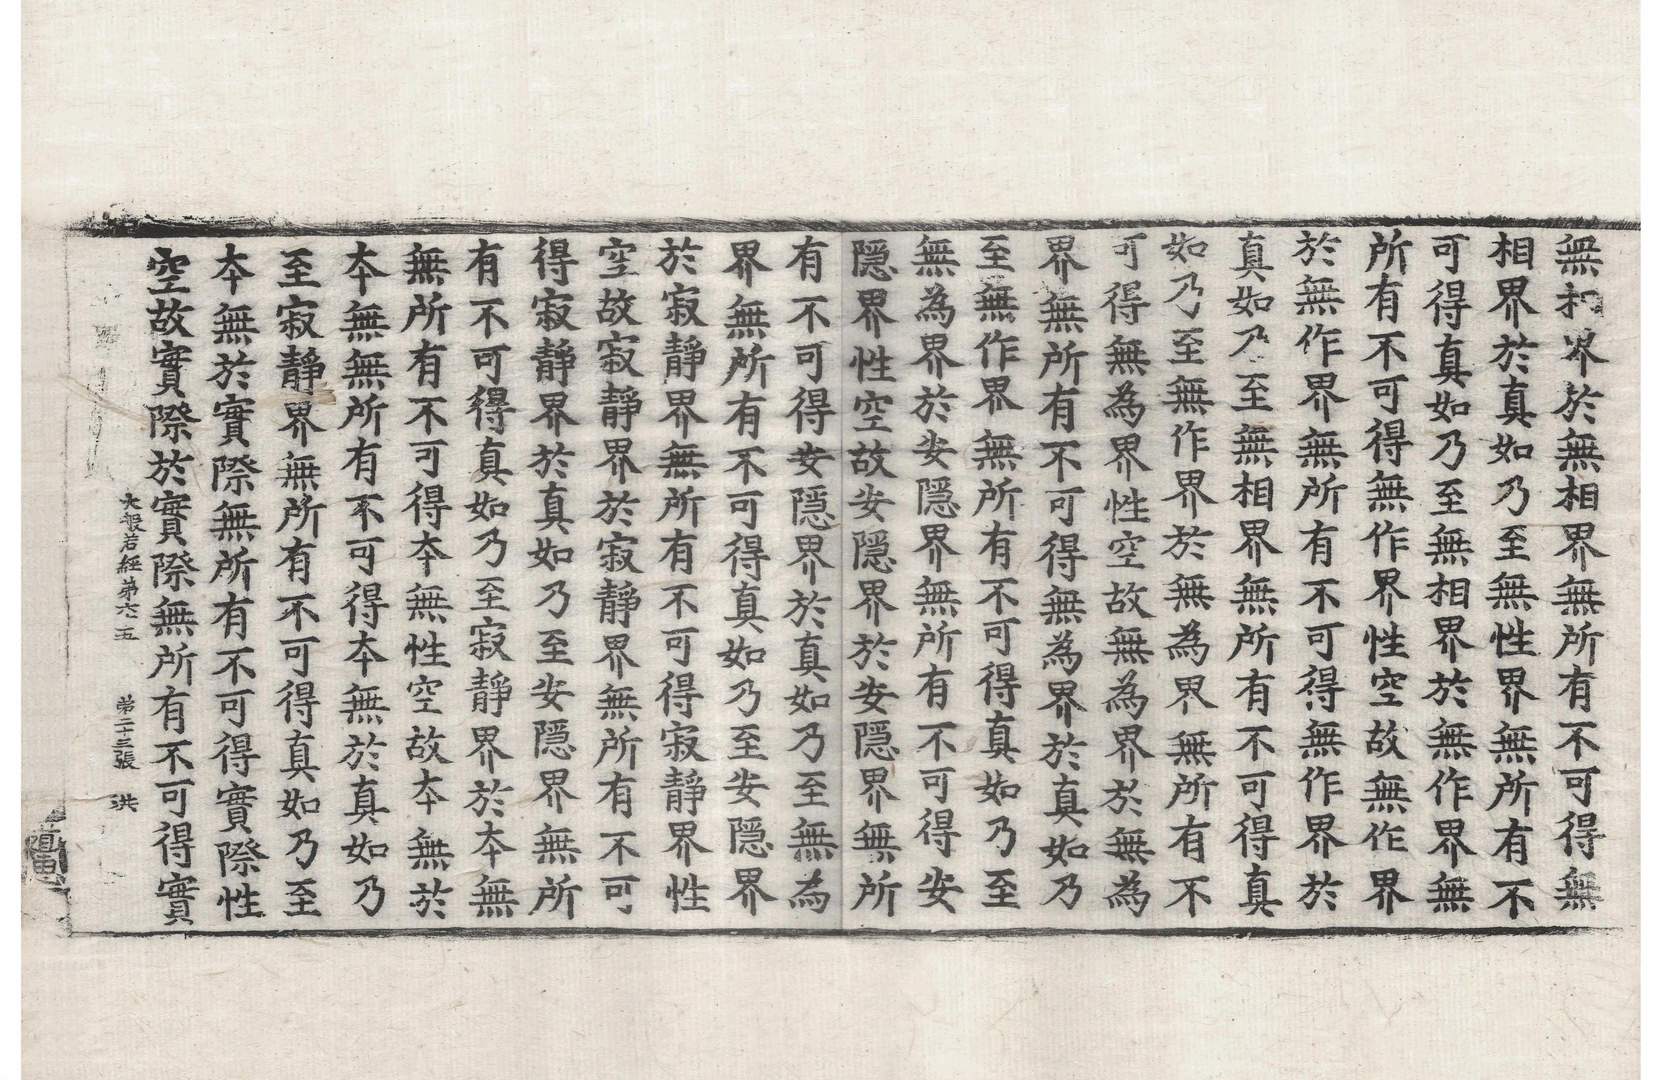 無相界於無相界無所有不可得無
相界於真如乃至無性界無所有不
可得真如乃至無相界於無作界無
所有不可得無作界性空故無作界
於無作界無所有不可得無作界於
真如乃至無相界無所有不可得真
如乃至無作界於無為界無所有不
可得無為界性空故無為界於無為
界無所有不可得無為界於真如乃
至無作界無所有不可得真如乃至
無為界於安隱界無所有不可得安
隱界性空故安隱界於安隱界無所
有不可得安隱界於真如乃至無為
界無所有不可得真如乃至安隱界
於寂靜界無所有不可得寂靜界性
空故寂靜界於寂靜界無所有不可
得寂靜界於真如乃至安隱界無所
有不可得真如乃至寂靜界於夲無
無所有不可得夲無性空故夲無於
夲無無所有不可得夲無於真如乃
至寂靜界無所有不可得真如乃至
夲無於實際無所有不可得實際性
空故實際於實際無所有不可得實
大般若經第六十五 第二十三張 洪